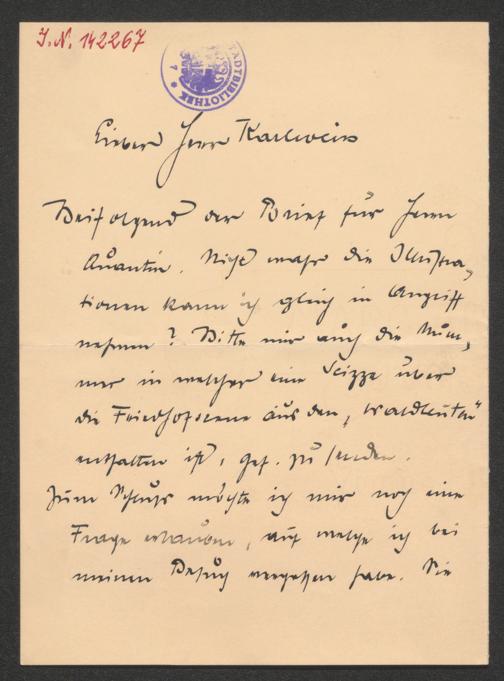 J.N. 142267
STADTBIBLIOTHEK
Lieber Herr Karlweis
Beifolgend der Brief für Herrn
Quantin. Nicht wahr die Illustra-
tionen kann ich gleich in Angriff
nehmen? Bitte mir auch die Num-
mer in welcher eine Scizze über
die Friedhofscene aus den "Waldleuten"
enthalten ist, gef. zu senden.
Zum Schluss möchte ich mir noch eine
Frage erlauben, auf welche ich bei
meinen Besuch vergessen habe. Sie